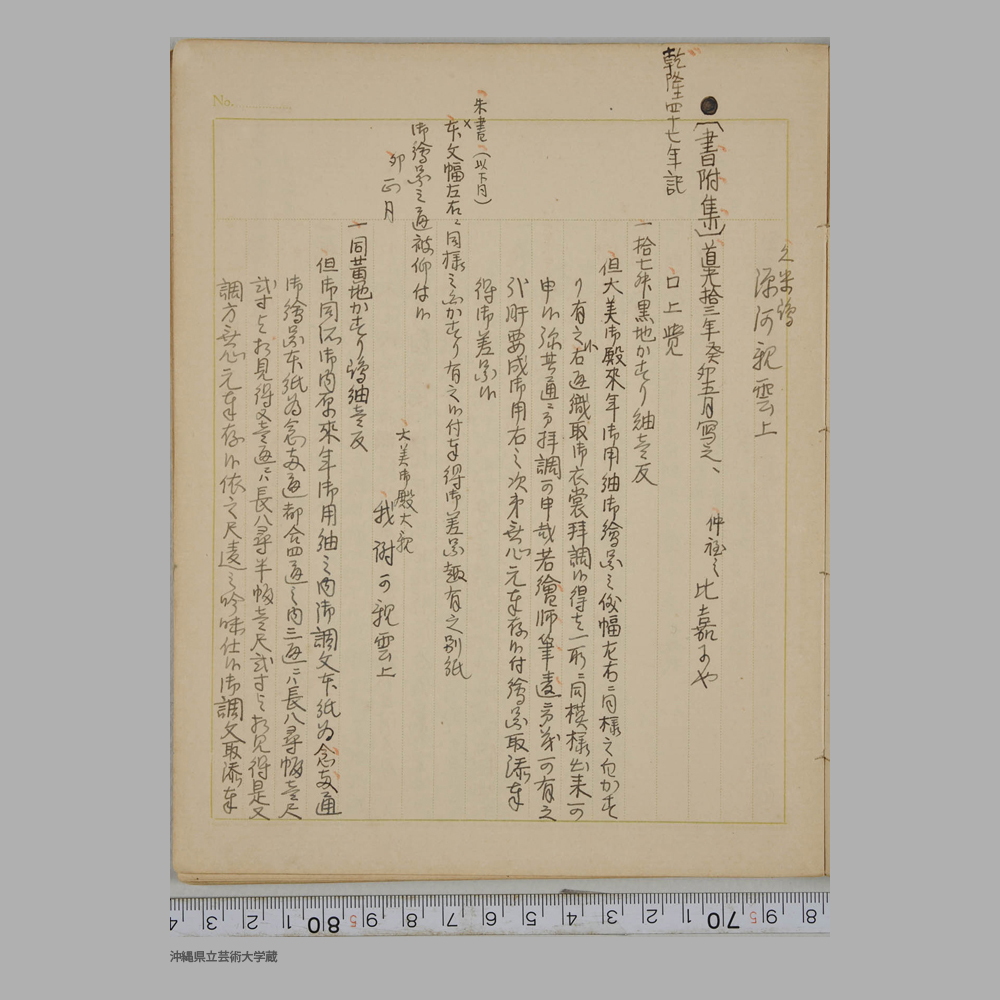 久米嶋
源河親雲上
乾隆四十七年記
【書附集】道光拾三年癸卯五月写之、 仲 比嘉 や
口上覚
一拾七舛黒地かすり紬壱反
但大美御殿来年御用紬御絵図之儀幅左右ニ同様之白かす
り有之右通織取御衣裳拝調候得者一取ニ同模様出来可
申候弥其通ニ而拝調可申哉若絵師筆違ニ而茂可有之
哉肝要成御用右之次第無心元奉存候付絵図取添奉
得御差図候
朱書(以下同)
×本文幅左右ニ同様之白かすり有之候付奉得御差図趣有之別紙
御絵図之通被仰付候
卯正月
大美御殿大親
我謝 親雲上
一同黄地かすり嶋紬壱反
但御同所御内原来年御用紬之内御調文本紙為念弐通
御絵図本紙為念弐通都合四通之内三通ニハ長八尋幅壱尺
弐寸与相見得又壱通ニハ長八尋半幅壱尺弐寸与相見得是又
調方無心元奉存候依之尺違之吟味仕候御調文取添奉
No.
3 2 1 80 9 8 7 6 5 4 3 2 1 70 9 8
沖縄県立芸術大学蔵